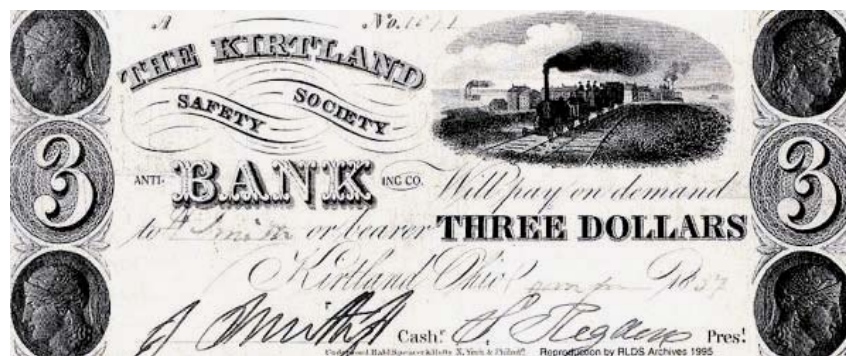 A No.
THE KIRTLAND
SAFETY SOCIETY
ANTI- BANK ING CO.
Will pay on demand
to J Smith or bearer THREE DOLLARS
3 3
Kirtland Ohio 1837
J Smith Cash.r S Rigdon Pres.t
Reproduction by RLDS Archives 1995